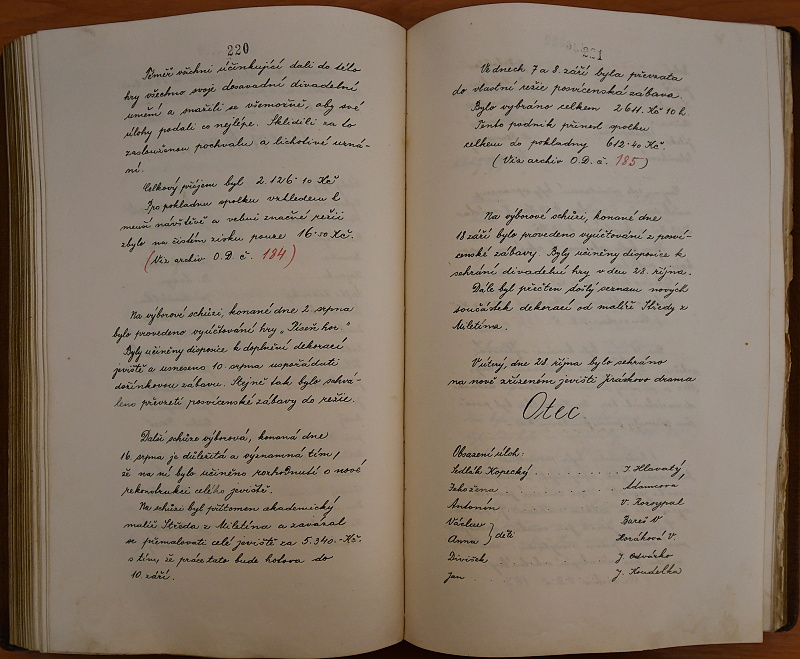 220
Téměř všichni účinkující dali do této
hry všechno svoje dosavadní divadelní
umění a snažili se všemožně, aby své
úlohy podali co nejlépe. Sklidili za to
zaslouženou pochvalu a lichotivé uzná-
ní.
Celkový příjem byl 2.126·10 Kč
Pro pokladnu spolku vzhledem k
menší návštěvě a velmi značné režii
zbylo na čistém zisku pouze 16·50 Kč.
(Viz archiv O.D. č. 184)
Na výborové schůzi, konané dne 2. srpna
bylo provedeno vyúčtování hry „Píseň hor."
Byly učiněny disposice k doplnění dekorací
jeviště a usneseno 10. srpna uspořádati
dožínkovou zábavu. Stejně tak bylo schvá-
leno převzetí posvícenské zábavy do režie.
Další schůze výborová, konaná dne
16. srpna je důležitá a významná tím,
že na ní bylo učiněno rozhodnutí o nové
rekonstrukci celého jeviště.
Na schůzi byl přítomen akademický
malíř Středa z Miletína a zavázal
se přemalovati celé jeviště za 5.340.-Kč.
s tím, že práce tato bude hotova do
10. září.
221
Ve dnech 7 a 8. září byla převzata
do vlastní režie posvícenská zábava.
Bylo vybráno celkem 2611. Kč 10 h.
Tento podnik přinesl spolku
celkem do pokladny 612·40 Kč.
(Viz archiv O.D. č. 185)
Na výborové schůzi, konané dne
18 září bylo provedeno vyúčtování z posví-
censké zábavy. Byly učiněny disposice k
sehrání divadelní hry v den 28. října.
Dále byl přečten došlý seznam nových
součástek dekorací od malíře Středy z
Miletína.
V úterý, dne 28 října bylo sehráno
na nově zřízeném jevišti Jiráskovo drama
Otec.
Obsazení úloh:
Sedlák Kopecký . . . . . . . . J. Hlavatý,
. . . . . . . . Adamcová
Antonín . . . . . . . . V. Rozsypal
Václav } děti Bareš V
Anna Horáková V.
Divíšek . . . . . . . . J.
Jan . . . . . . . . J. Koudelka